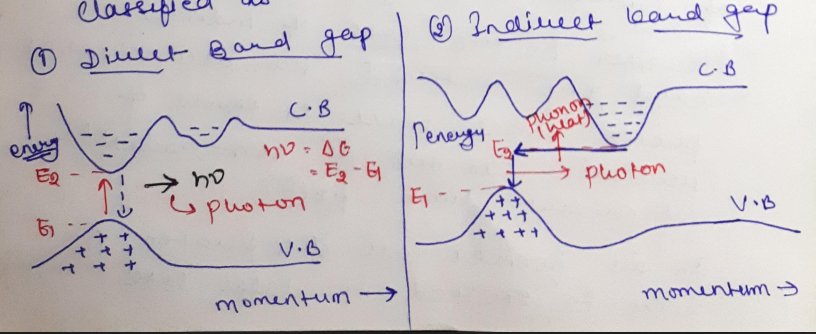 Classified as
① Direct Band gap
C.B
energy
E₂
hν = ΔE
= E₂ - E₁
→ hν
↳ photon
E₁
+ +
+ + +
+ + +
V.B
momentum →
② Indirect band gap
C.B
energy
phonon
(heat)
E₂
photon
E₁
+ +
+ + +
+ + ++
V.B
momentum →